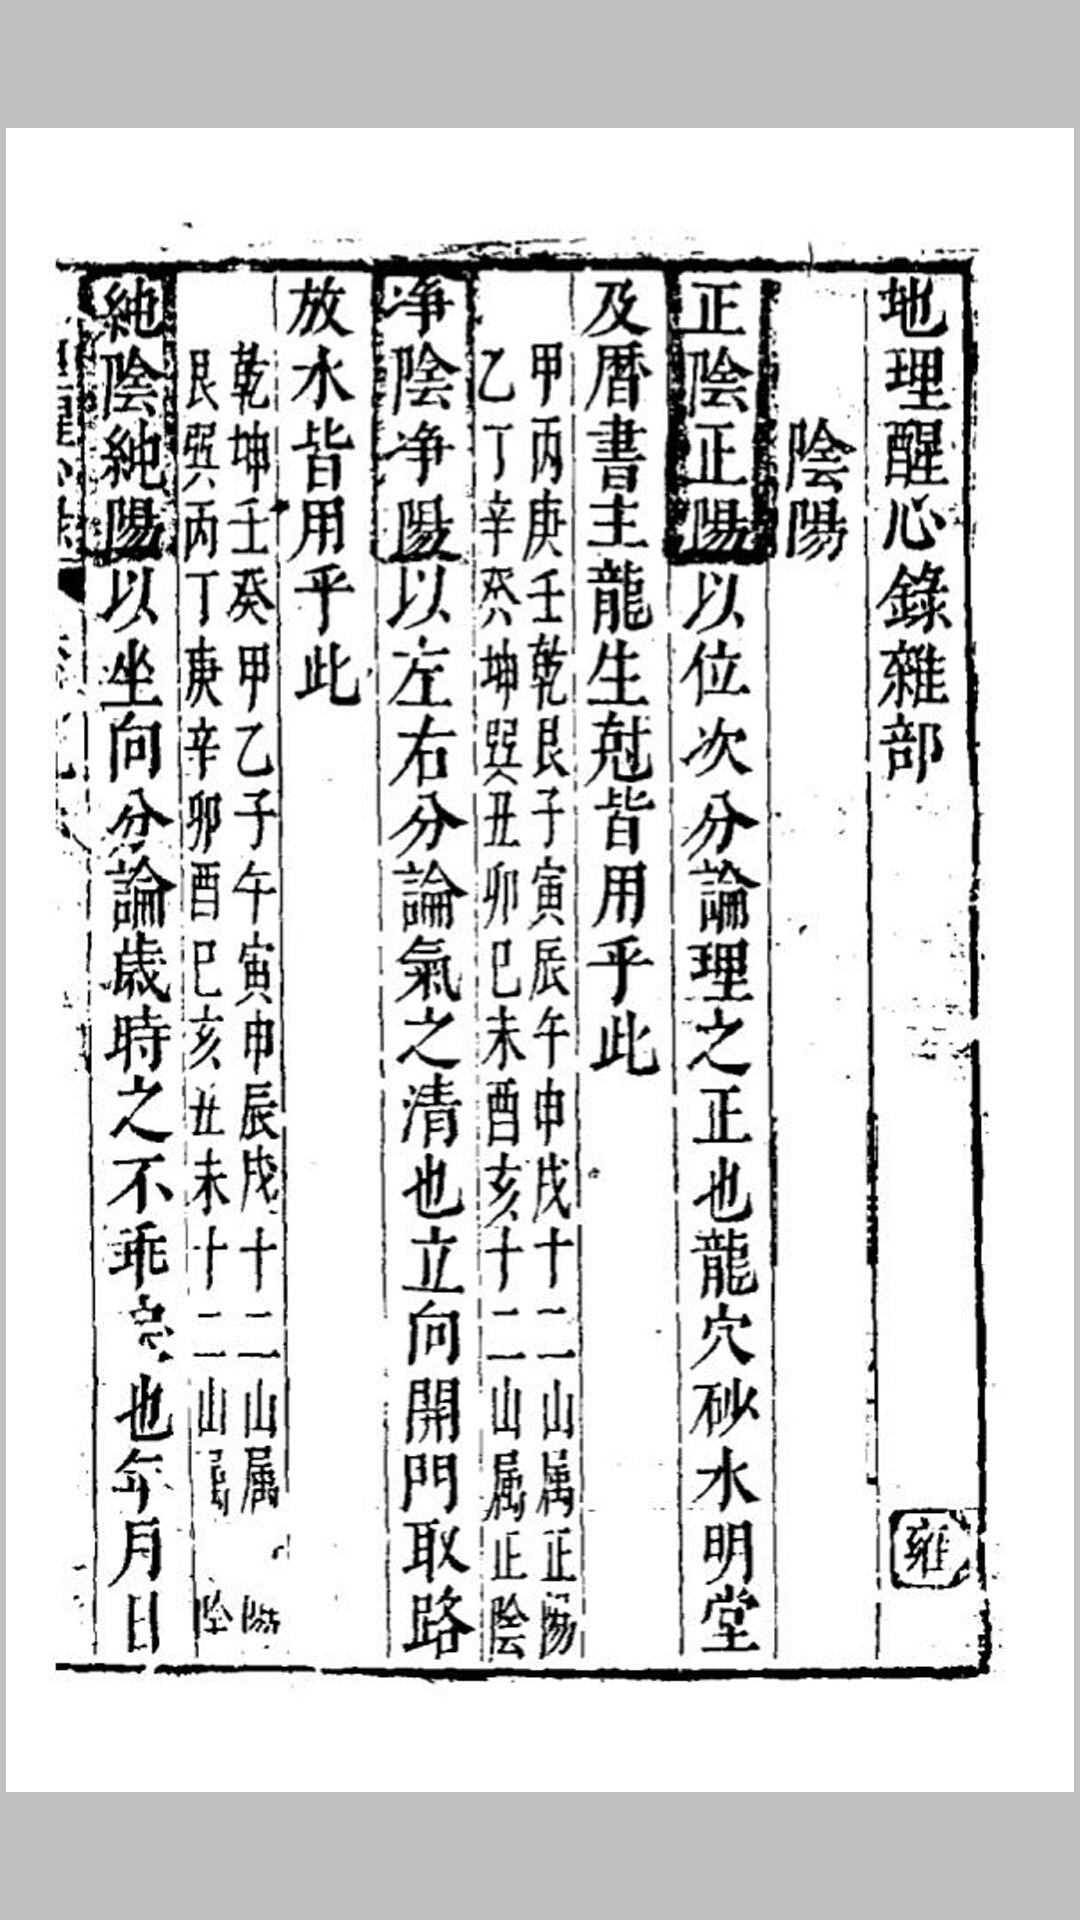 地理醒心錄雜部
雍
陰陽
正陰正陽以位次分論理之正也龍穴砂水明堂
及暦書主龍生尅皆用乎此
甲丙庚壬乾艮子寅辰午申戌十二山属正陽
乙丁辛癸坤巽丑卯巳未酉亥十二山属正陰
净陰净陽以左右分論氣之清也立向開門取路
放水皆用乎此
乾坤壬癸甲乙子午寅申辰戌十二山属陽
艮巽丙丁庚辛卯酉巳亥丑未十二山属陰
純陰純陽以坐向分論歲時之不乖也年月日